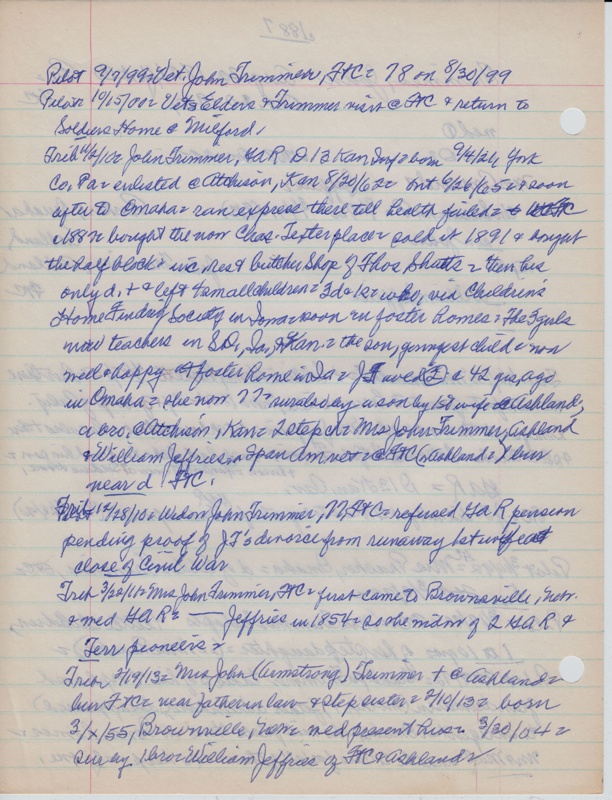 1887
Pilot 9/7/99= Vet. John Trimmer, F+C= 78 on 8/30/99
Pilot= 10/15/00= Vets Elders & Trimmer visit @ FC & return to
Soldiers Home @ Milford,
Trib= 4/2/10= John Trimmer, GAR D 13 Kan Inf= born 9/4/26, York
Co, Pa= enlisted @ Atchison, Kan 8/20/62= out 6/26/65= & soon
after to Omaha= ran express there till health failed= to FC
1887= bought the now Chas Texter place= sold it 1891 & bought
the half block= inc, res & butcher shop of Thos Shatts= then his
only d, + & left 4 small children= 3d & 1s= who, via Children's
Home Finding Society in Iowa= soon in foster homes= The 3 girls
now teachers in S.D., Ia, & Kan= the son, youngest child= now
med & happy @ foster home in Ia= JT wed (2) @ 42 yrs, ago
in Omaha= she now 77= surv also by a son by 1st wife @ Ashland,
a bro, @ Atchison, Kan= 2 step ch= Mrs John Trimmer, Ashland
& William Jeffries, a Span Am vet= @ FC, Ashland= bur
near d FC,
Trib= 12/28/10= Widow John Trimmer, 77, FC= refused GAR pension
pending proof of JT's divorce from runaway 1st wife at
close of Civil War
Trib 3/20/11= Mrs John Trimmer, FC= first came to Brownsville, Nebr.
& med GAR= — Jeffries in 1854= so she widow of 2 GAR &
Terr pioneers=
Trib= 2/19/13= Mrs John (Armstrong) Trimmer + @ Ashland=
bur FC= near father in law & step sister= 2/10/13= born
3/x/55, Brownville, Neb= med present hus= 3/30/04=
sur by 1 bro= William Jeffries of FC & Ashland=